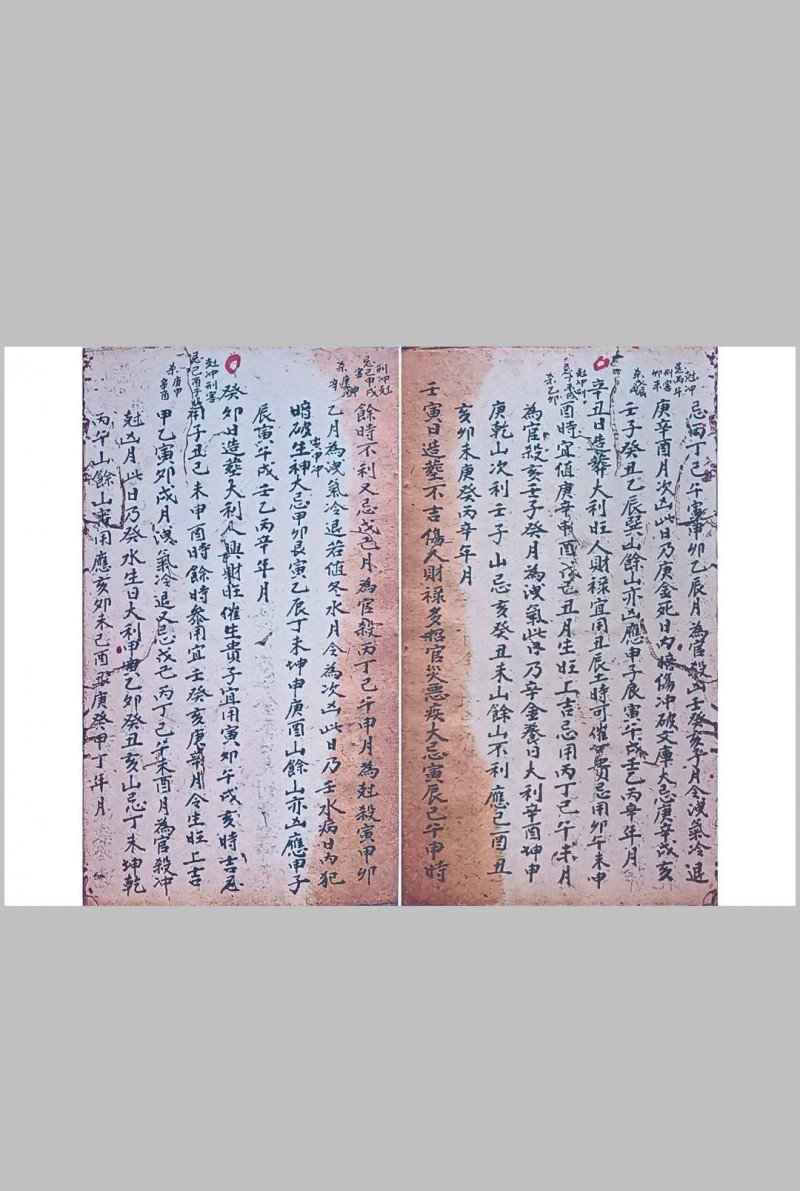 忌丙丁巳午寅甲卯乙辰月為官殺凶壬癸亥子月令洩氣冷退
庚辛酉月次凶此日乃庚金死日內悞傷冲破文庫大忌庚辛戌亥
壬子癸丑乙辰巽山餘山亦凶應申子辰寅午戌壬乙丙辛年月
辛丑日造葬大利旺人財禄宜用丑辰土時可催官貴忌用卯午未申
酉時宜值庚辛申酉戊己丑月生旺上吉忌用丙丁巳午未月
為官殺亥壬子癸月為洩氣此日乃辛金養日大利辛酉坤申
庚乾山次利壬子山忌亥癸丑未山餘山不利應巳酉丑
亥卯未庚癸丙辛年月
壬寅日造塟不吉傷人財禄多招官災悪疾大忌寅辰巳午申時
刑冲尅
餘時不利又忌戊己月為官殺丙丁巳午申月為尅殺寅甲卯
乙月為洩氣冷退若值冬水月令為次凶此日乃壬水病日內犯
時破生神大忌甲卯艮寅乙辰丁未坤申庚酉山餘山亦凶應申子
辰寅午戌壬乙丙辛年月
癸卯日造塟大利人興財旺催生貴子宜用寅卯午戌亥時吉忌
用子丑巳未申酉時餘時參用宜壬癸亥庚月令生旺上吉
甲乙寅卯戌月洩氣冷退又忌戊己丙丁巳午未酉月為官殺冲
尅凶月此日乃癸水生日大利甲乙卯癸丑亥山忌丁未坤乾
丙午山餘山用應亥卯未巳酉丑庚癸甲丁年月